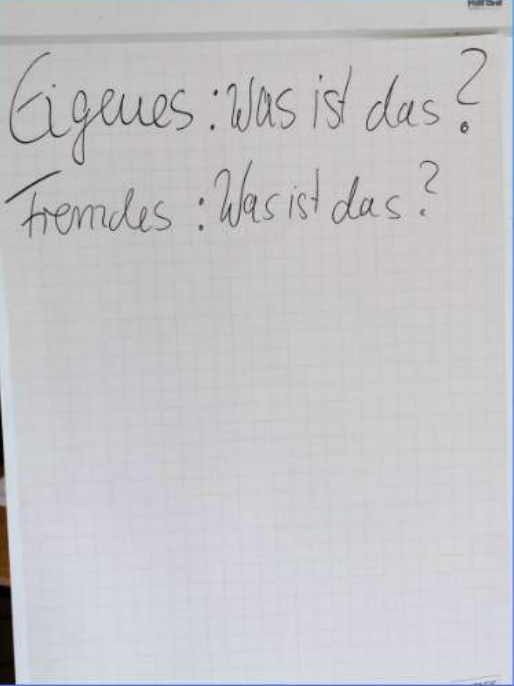 Eigenes : Was ist das ?
Fremdes : Was ist das ?